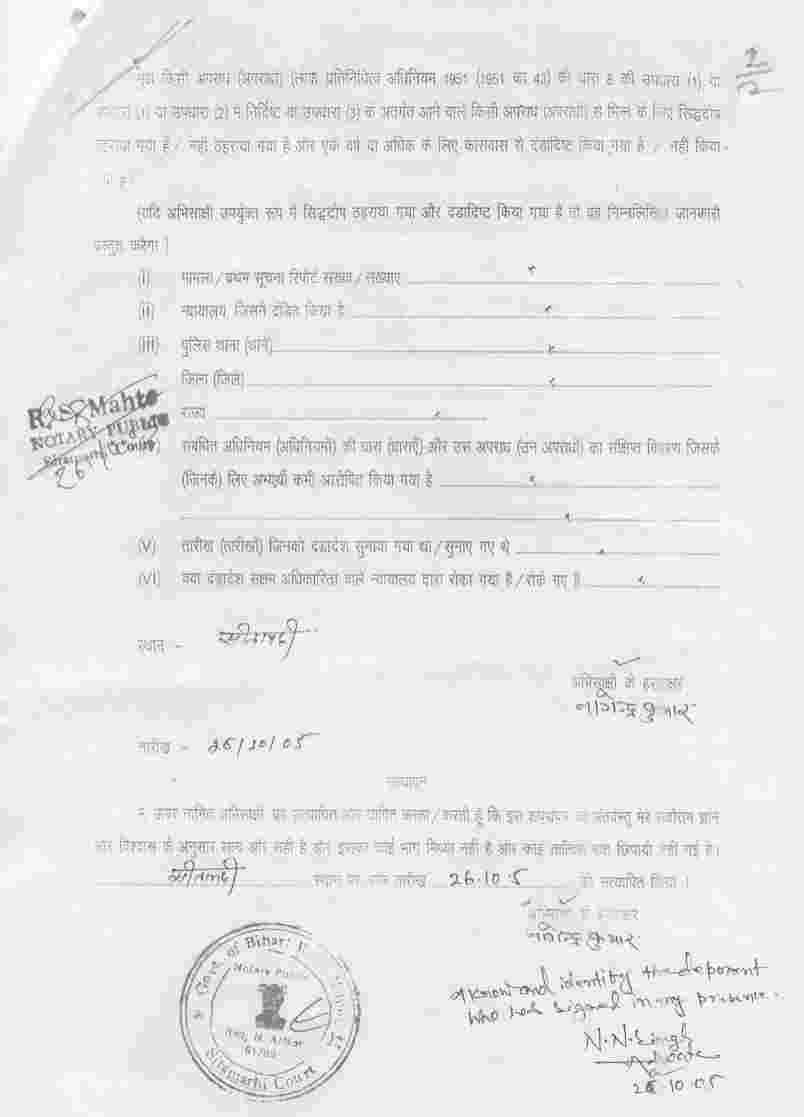 2
2
मुझे किसी अपराध (अपराधों) (लोक प्रतिनिधित्व अधिनियम 1951 (1951 का 43) की धारा 8 की उपधारा (1) या
उपधारा (1) या उपधारा (2) में निर्दिष्ट या उपधारा (3) के अंतर्गत आने वाले किसी अपराध (अपराधों) से भिन्न के लिए सिद्धदोष
ठहराया गया है / नहीं ठहराया गया है और एक वर्ष या अधिक के लिए कारावास से दंडादिष्ट किया गया है / नहीं किया
(यदि अभिसाक्षी उपर्युक्त रूप में सिद्धदोष ठहराया गया और दंडादिष्ट किया गया है तो वह निम्नलिखित जानकारी
प्रस्तुत करेगा )
(i) मामला / प्रथम सूचना रिपोर्ट संख्या / संख्याएं
(ii) न्यायालय, जिसने दंडित किया है
(iii) पुलिस थाना (थाने)
जिला (जिले)
राज्य
R. S. Mahto
NOTARY PUBLIC
Sitamarhi Court
संबंधित अधिनियम (अधिनियमों) की धारा (धाराएँ) और उस अपराध (उन अपराधों) का संक्षिप्त विवरण जिसके
(जिनके) लिए अभ्यर्थी कभी आरोपित किया गया है
(V) तारीख (तारीखों) जिनको दंडादेश सुनाया गया था / सुनाए गए थे
(VI) क्या दंडादेश सक्षम अधिकारिता वाले न्यायालय द्वारा रोका गया है / रोके गए है
स्थान - सीतामढ़ी
अभिसाक्षी के हस्ताक्षर
नागेन्द्र कुमार
तारीख - 26/10/05
सत्यापन
ऊपर नामित अभिसाक्षी यह सत्यापित और घोषित करता / करती हूँ कि इस शपथपत्र की अंतर्वस्तु मेरे सर्वोत्तम ज्ञान
और विश्वास के अनुसार सत्य और सही है और इसका कोई भाग मिथ्या नहीं है और कोई तात्विक बात छिपायी नहीं गई है।
सीतामढ़ी स्थान पर आज तारीख 26.10.5 को सत्यापित किया।
अभिसाक्षी के हस्ताक्षर
नागेन्द्र कुमार
Govt. of Bihar
Notary Public
Sitamarhi Court
I know and identity the deponent
who has signed in my presence.
N.N. Singh
Advocate
26.10.05